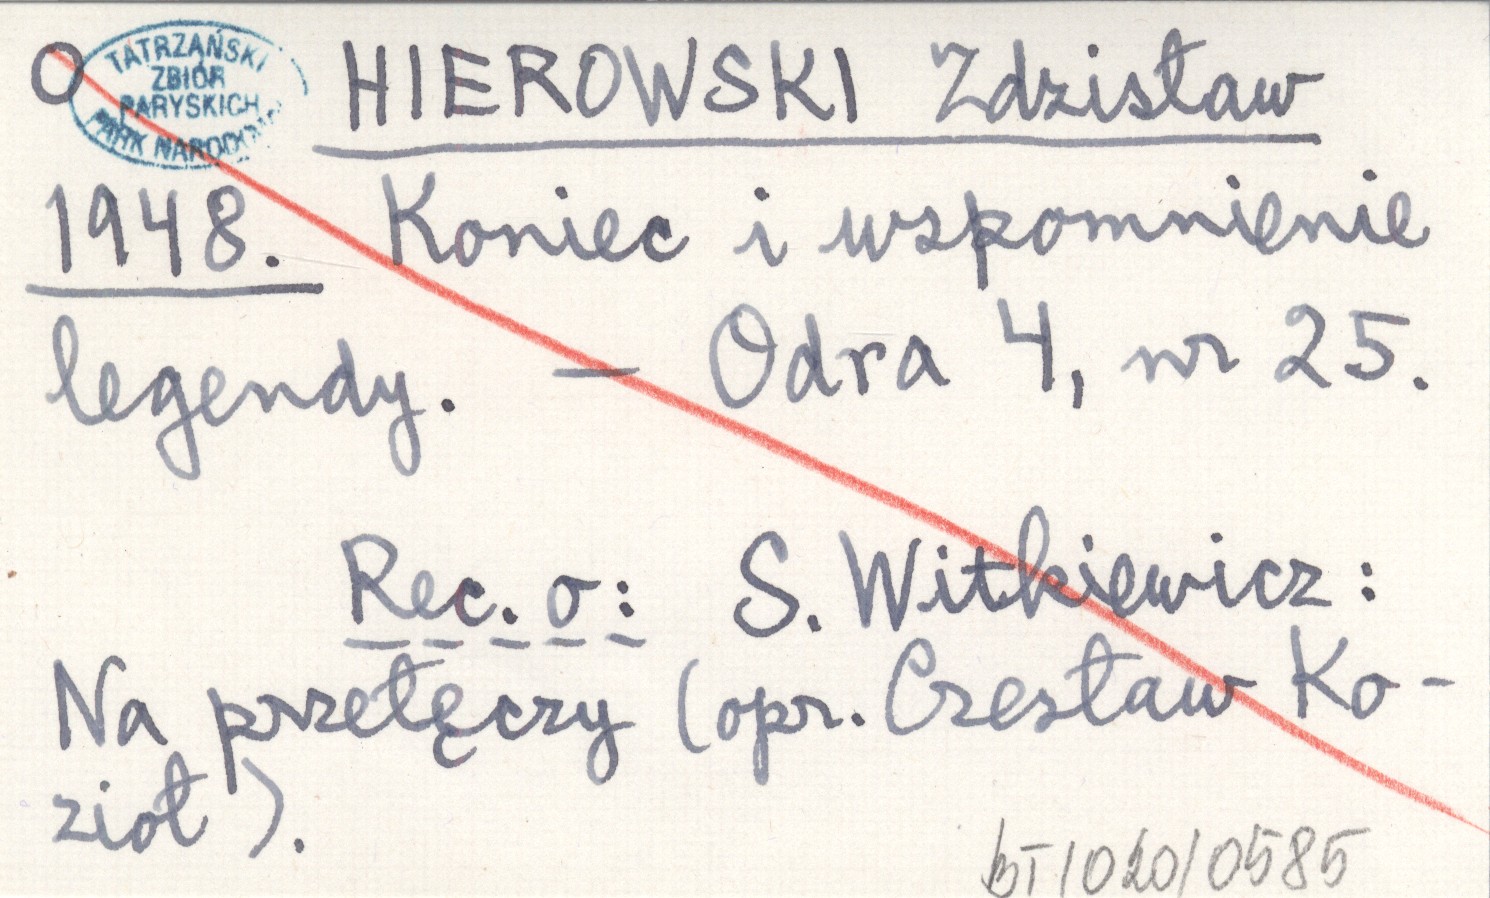 O
TATRZAŃSKI
ZBIÓR
PARYSKICH
PARK NARODOWY
HIEROWSKI Zdzisław
1948. Koniec i wspomnienie
legendy. — Odra 4, nr 25.
Rec. o: S. Witkiewicz:
Na przełęczy (opr. Czesław Ko-
zioł).
BT/020/0585